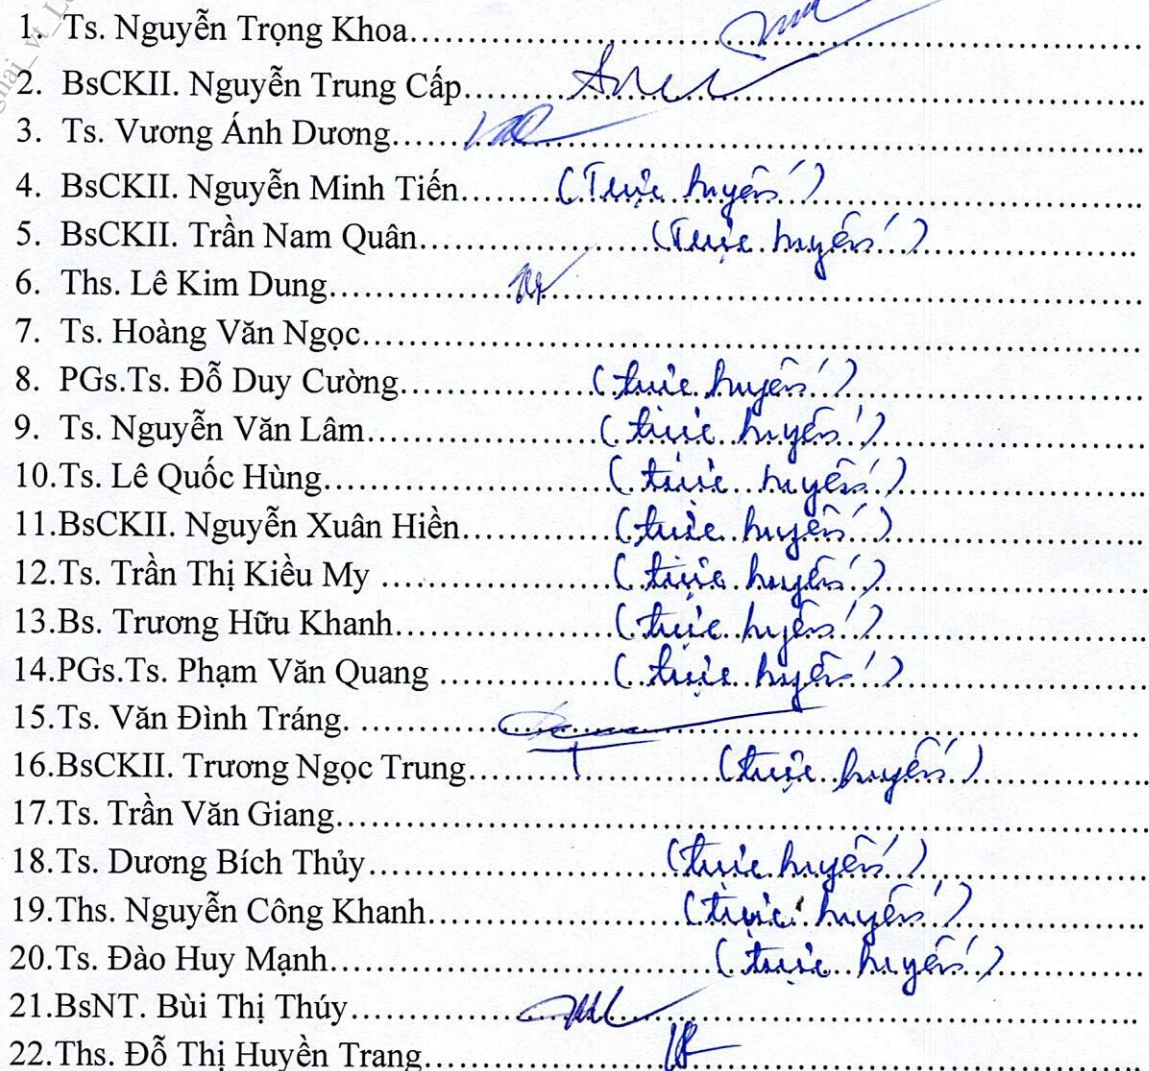 1. Ts. Nguyễn Trọng Khoa……………………………………
2. BsCKII. Nguyễn Trung Cấp……………………………………
3. Ts. Vương Ánh Dương……………………………………
4. BsCKII. Nguyễn Minh Tiến……(Trực tuyến)……………………
5. BsCKII. Trần Nam Quân……(Trực tuyến)……………………
6. Ths. Lê Kim Dung……………………………………
7. Ts. Hoàng Văn Ngọc……………………………………
8. PGs.Ts. Đỗ Duy Cường……(trực tuyến)……………………
9. Ts. Nguyễn Văn Lâm……(trực tuyến)……………………
10.Ts. Lê Quốc Hùng……(trực tuyến)……………………
11.BsCKII. Nguyễn Xuân Hiền……(trực tuyến)……………………
12.Ts. Trần Thị Kiều My ……(trực tuyến)……………………
13.Bs. Trương Hữu Khanh……(trực tuyến)……………………
14.PGs.Ts. Phạm Văn Quang ……(trực tuyến)……………………
15.Ts. Văn Đình Tráng. ……………………………………
16.BsCKII. Trương Ngọc Trung……(trực tuyến)……………………
17.Ts. Trần Văn Giang……………………………………
18.Ts. Dương Bích Thủy……(trực tuyến)……………………
19.Ths. Nguyễn Công Khanh……(trực tuyến)……………………
20.Ts. Đào Huy Mạnh……(trực tuyến)……………………
21.BsNT. Bùi Thị Thúy……………………………………
22.Ths. Đỗ Thị Huyền Trang……………………………………